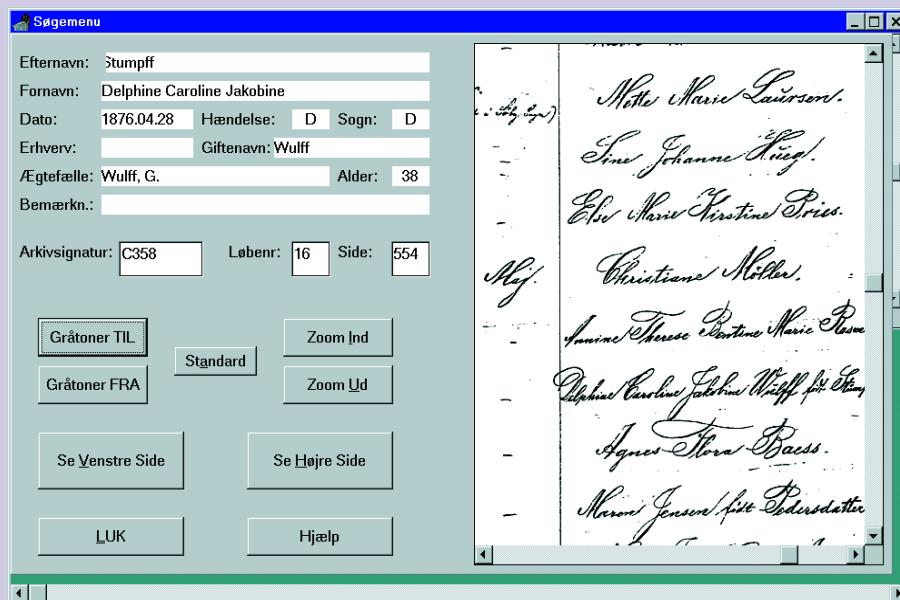 Søgemenu
Efternavn: Stumpff
Fornavn: Delphine Caroline Jakobine
Dato: 1876.04.28 Hændelse: D Sogn: D
Erhverv: Giftenavn: Wulff
Ægtefælle: Wulff, G. Alder: 38
Bemærkn.:
Arkivsignatur: C358 Løbenr: 16 Side: 554
Gråtoner TIL
Zoom Ind
Standard
Gråtoner FRA
Zoom Ud
Se Venstre Side
Se Højre Side
LUK
Hjælp
Mette Marie Laursen.
Sine Johanne Hueg.
Else Marie Kirstine Pries.
Maj. Christiane Möller.
Annine Therese Bentine Marie
Delphine Caroline Jakobine Wulff født Stump
Agnes Flora Baess.
Maren Jensen født Pedersdatter